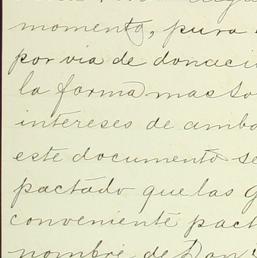 momento, pura
por via de donaci
la forma mas so
intereses de ambo
este documento se
pactado que las g
conveniente pact
nombre de Don